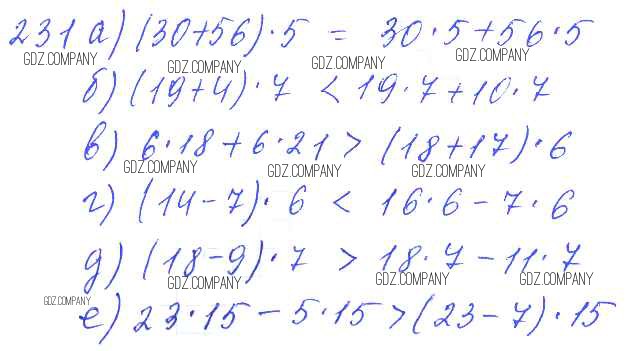 231 а) (30+56)·5 = 30·5+56·5
GDZ.COMPANY GDZ.COMPANY GDZ.COMPANY GDZ.COMPANY
б) (19+4)·7 < 19·7+10·7
в) 6·18+6·21 > (18+17)·6
GDZ.COMPANY GDZ.COMPANY GDZ.COMPANY
г) (14-7)·6 < 16·6-7·6
д) (18-9)·7 > 18·7-11·7
GDZ.COMPANY GDZ.COMPANY GDZ.COMPANY
GDZ.COMPANY
е) 23·15-5·15>(23-7)·15